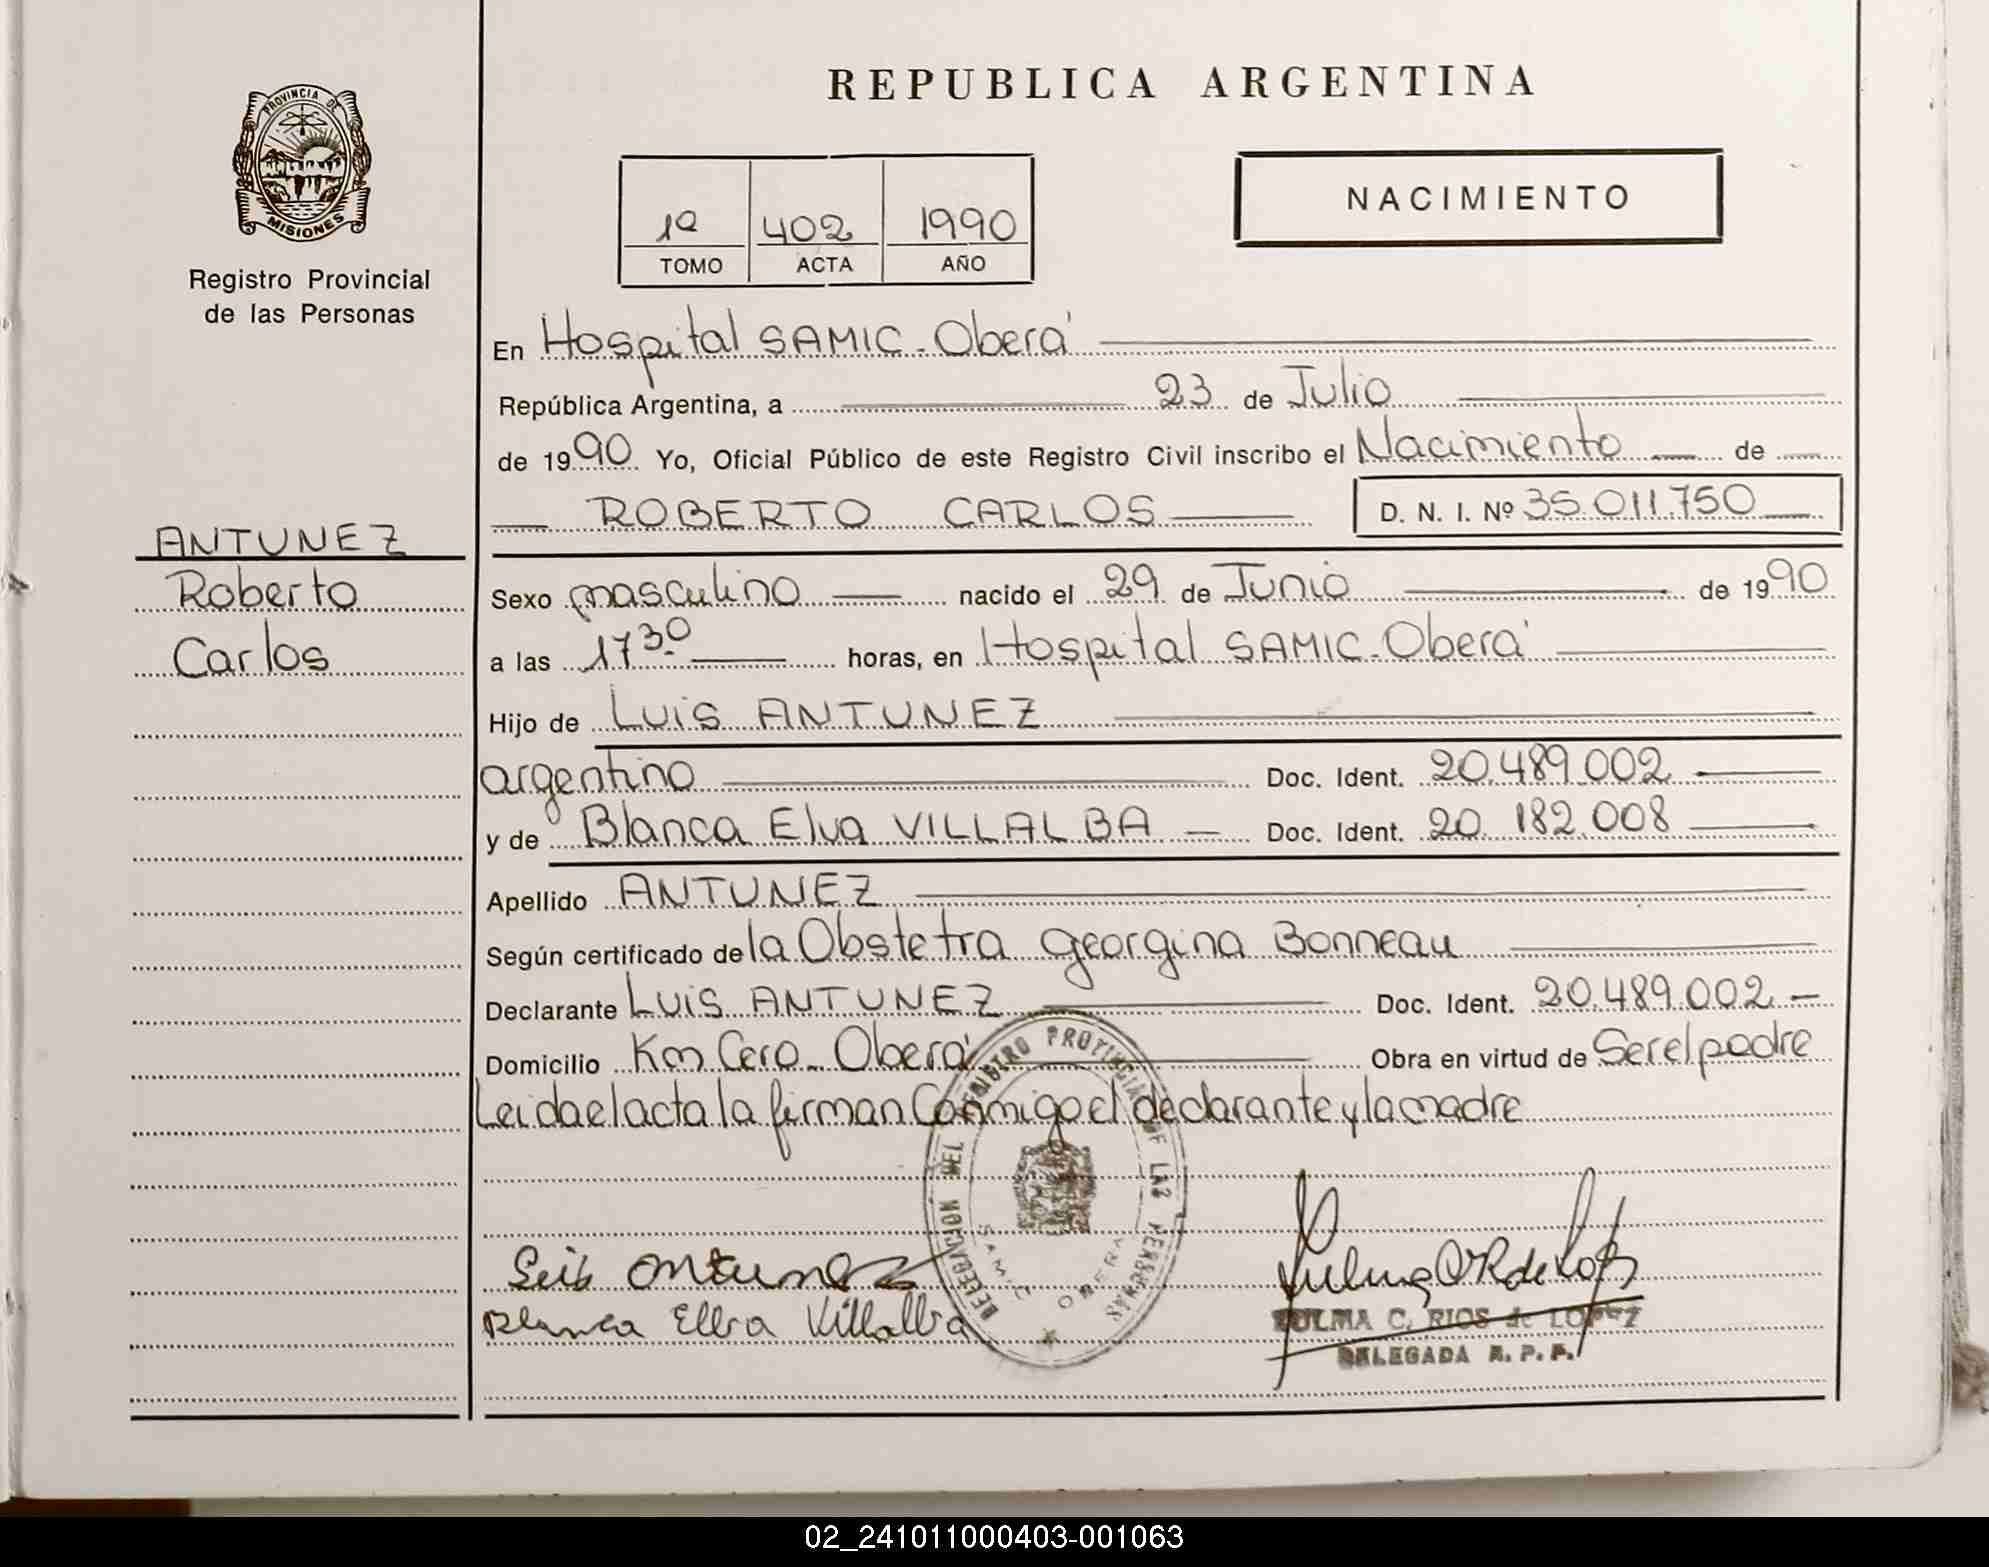 REPUBLICA ARGENTINA
PROVINCIA DE
MISIONES
Registro Provincial
de las Personas
NACIMIENTO
1º 402 1990
TOMO ACTA AÑO
En Hospital SAMIC - Oberá
República Argentina, a 23 de Julio
de 1990 Yo, Oficial Público de este Registro Civil inscribo el Nacimiento de
ROBERTO CARLOS D. N. I. Nº 35.011.750
ANTUNEZ
Roberto
Carlos
Sexo masculino nacido el 29 de Junio de 1990
a las 17 30 horas, en Hospital SAMIC - Oberá
Hijo de Luis ANTUNEZ
argentino Doc. Ident. 20.489.002
y de Blanca Elva VILLALBA Doc. Ident. 20.182.008
Apellido ANTUNEZ
Según certificado de la Obstetra Georgina Bonneau
Declarante Luis ANTUNEZ Doc. Ident. 20.489.002
Domicilio Km Cero - Oberá Obra en virtud de Ser el padre
Leida el acta la firman Conmigo el declarante y la madre
DELEGACION DEL REGISTRO PROVINCIAL DE LAS PERSONAS
SAMIC OBERA
Luis Antunez
Blanca Elba Villalba
ZULMA C. RIOS de LOPEZ
DELEGADA R. P. P.
02_241011000403-001063